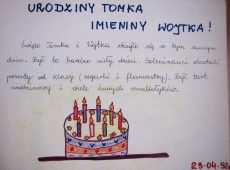 URODZINY TOMKA
IMIENINY WOJTKA!
Święto Tomka i Wojtka zbiegło się w tym samym
dniu. Był to bardzo miły dzień. Solenizanci dostali
prezenty od klasy (zegarki i flamastry), był tort
urodzinowy i wiele innych smakołyków.
23-04-92